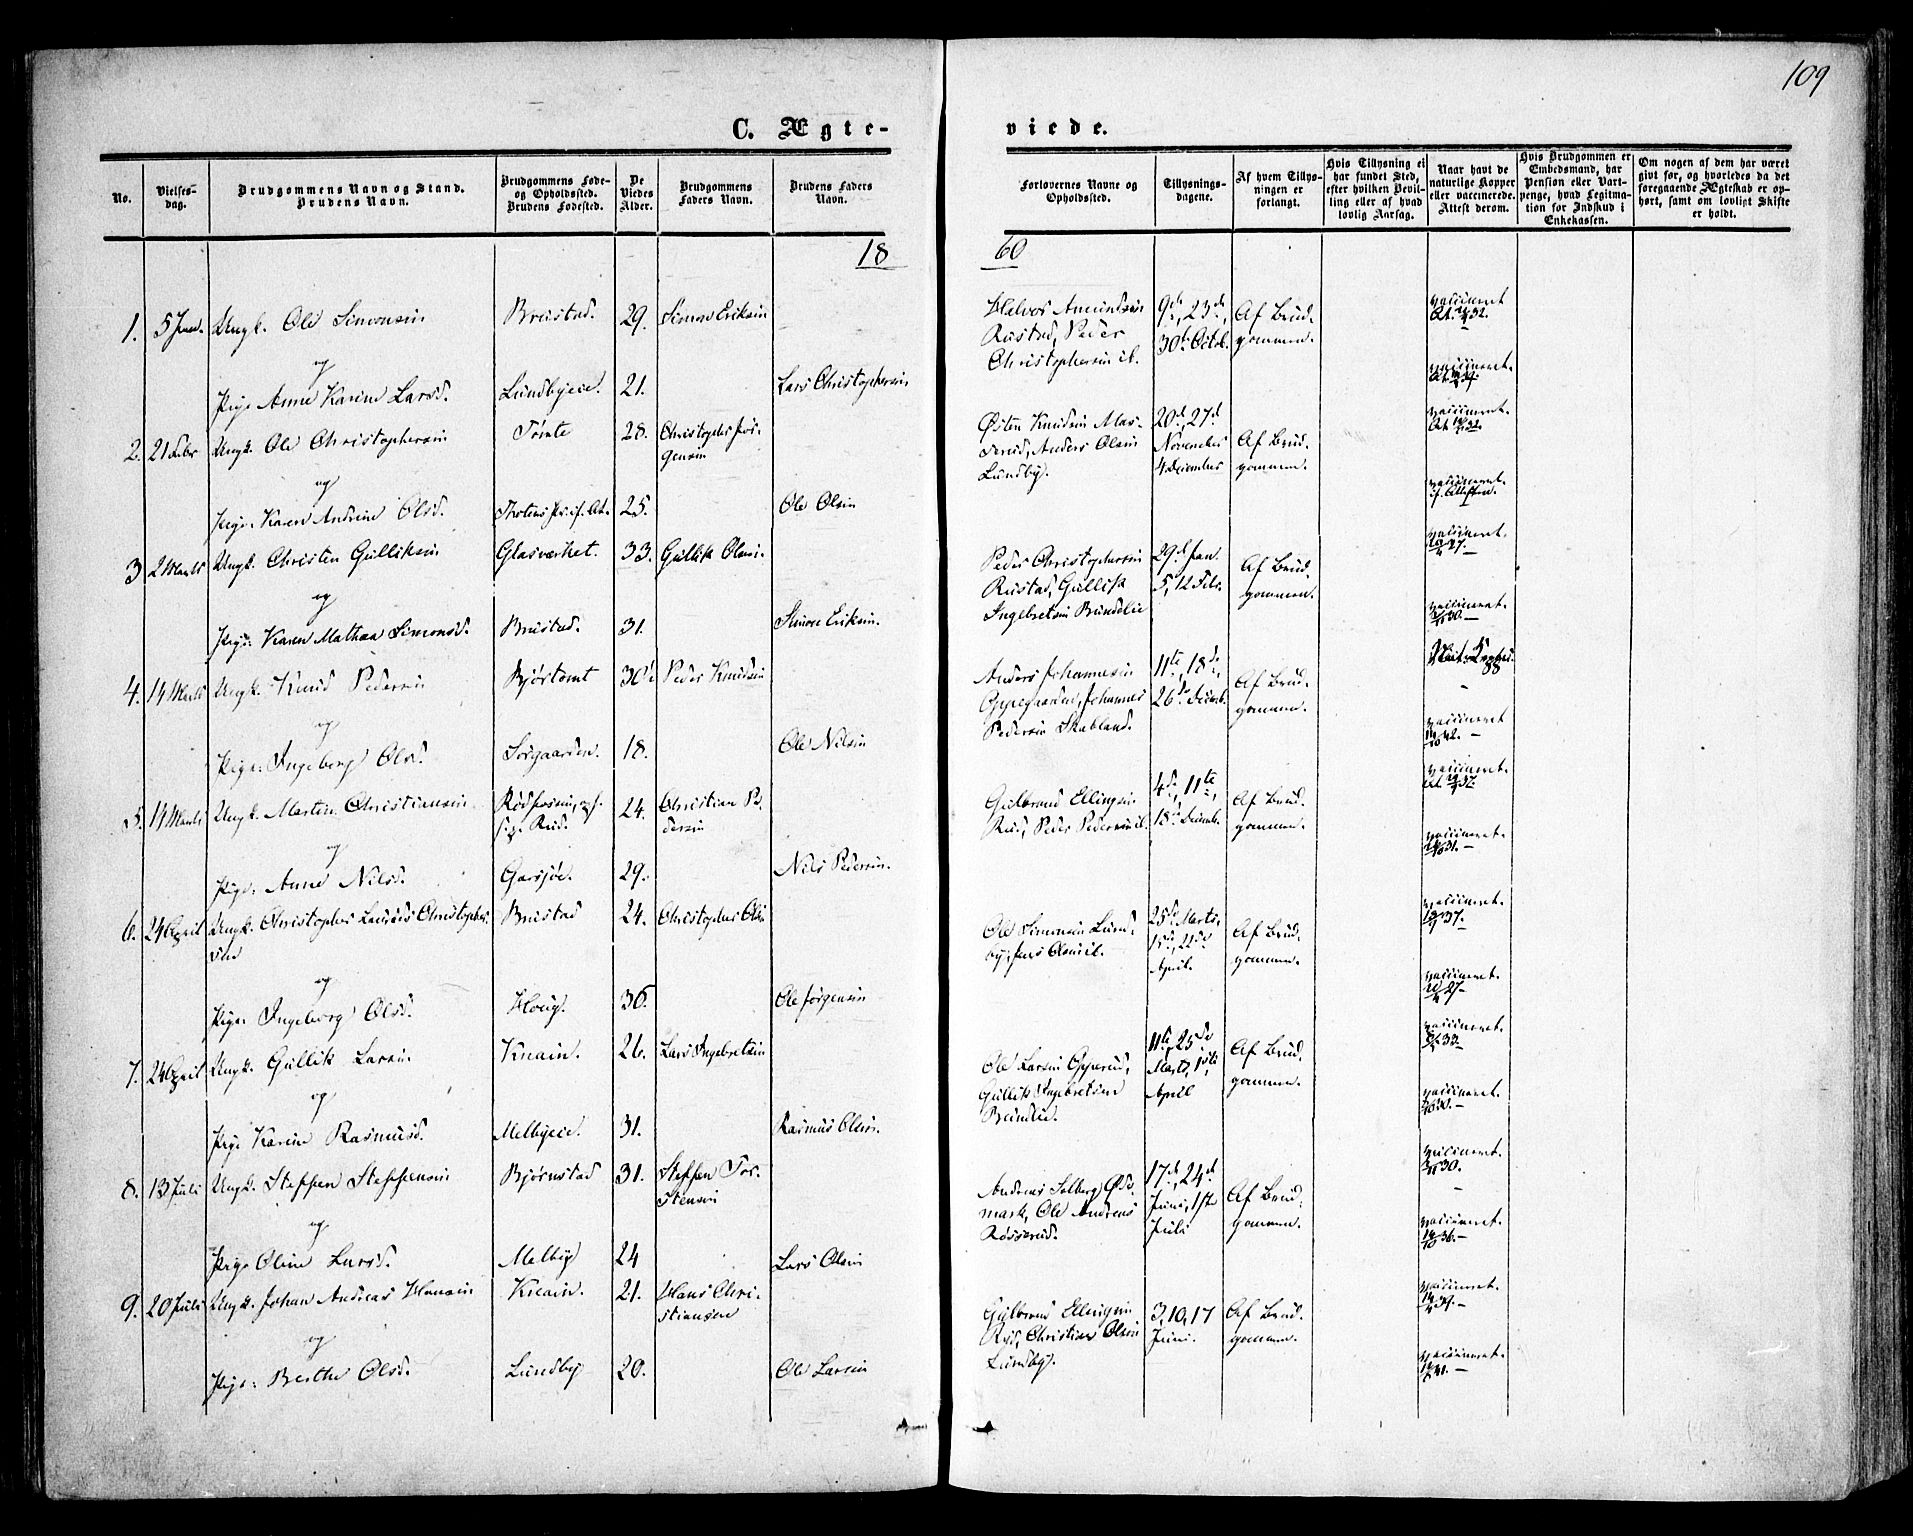 109
C. Ægte-
viede.
No.
Vielses-
dag.
Brudgommens Navn og Stand.
Brudens Navn.
Brudgommens Føde-
og Opholdssted.
Brudens Fødested.
De
Viedes
Alder.
Brudgommens
Faders Navn.
Brudens Faders
Navn.
Forlovernes Navne og
Opholdssted.
Tillysnings-
dagene.
Af hvem Tillys-
ningen er
forlangt.
Hvis Tillysning ei
har fundet Sted,
efter hvilken Bevil-
ling eller af hvad
lovlig Aarsag.
Naar havt de
naturlige Kopper
eller vaccinerede.
Attest derom.
Hvis Brudgommen er
Embedsmand, har
Pension eller Vart-
penge, hvad Legitma-
tion for Indskud i
Enkekassen.
Om nogen af dem har været
givt før, og hvorledes da det
foregaaende Ægteskab er op-
hørt, samt om lovligt Skifte
er holdt.
18 60
1. 5 Jan. Ungk. Ole Simonsen Brustad. 29. Simon Eriksen
Halvor Amundsen
Rustad, Peder
Christophersen ib.
9de, 23de,
30te Octob.
Af Brud-
gommen.
vaccineret
og
Pige Anne Karine Larsd. Lundbyeie. 21. Lars Christophersen
vaccineret.
2. 21 Febr Ungk. Ole Christophersen Tømte 28. Christopher Jør-
gensen
Østen Knudsen Mas-
serud, Anders Olsen
Lundby.
20de, 27de
November
4 December
Af Brud-
gommen.
vaccineret.
og
Pige Karen Andrine Olsd. 25. Ole Olsen
vaccineret.
3 2 Marts Ungk. Christen Gulliksen Glasværket. 33. Gullik Olsen.
Peder Christophersen
Rustad, Gullik
Ingebretsen Brundlie
29de Jan.
5, 12 Febr.
Af Brud-
gommen.
vaccineret.
og
Pige Karen Mathea Simonsd. Brustad. 31. Simon Eriksen.
vaccineret.
4. 14 Marts Ungk. Knud Pedersen Bjørtomt 30 Peder Knudsen
Anders Johannesen
Oppegaarden, Johannes
Pedersen Skabland.
11te, 18de,
26de Decemb.
Af Brud-
gommen.
og
Pige Ingeborg Olsd. Sørgaarden. 18. Ole Nilsen
vaccineret
5. 14 Marts Ungk. Martin Christiansen 24. Christian Pe-
dersen
Gulbrand Ellingsen
Rud, Peder Pedersen ib.
4de, 11te,
18de Decemb.
Af Brud-
gommen.
vaccineret.
og
Pige Anne Nilsd. Garsjøe. 29. Nils Pedersen.
vaccineret.
6. 24 April Ungk. Christopher Laurids Christopher
sen
Brustad 24. Christopher Olsen
Ole Simensen Lund-
by, Jens Olsen ib.
25de Marts,
1ste, 22de
April.
Af Brud-
gommen.
vaccineret.
og
Pige Ingeborg Olsd. Hovig. 36. Ole Jørgensen
vaccineret.
7. 24 April Ungk. Gullik Larsen Knain. 26. Lars Ingebretsen
Ole Larsen Opperud,
Gullik Ingebretsen
Brundlie.
11te, 25de
Marts, 1ste
April
Af Brud-
gommen.
vaccineret.
og
Pige Karine Rasmusd. Melbyeie. 31. Rasmus Olsen.
vaccineret.
8. 13 Juli Ungk. Steffen Steffensen Bjørnstad 31. Steffen Tor-
stensen
Andreas Solberg Ød-
mark, Ole Andreas
Røsserud.
17de, 24de
Juni, 1ste
Juli
Af Brud-
gommen.
vaccineret.
og
Pige Oline Larsd. Melby 24 Lars Olsen
vaccineret.
9. 20 Juli Ungk. Johan Andreas Hansen Knain. 21. Hans Chri-
stiansen
Gulbrand Ellingsen
Rud, Christian Olsen
Lundby.
3, 10, 17
Juni.
Af Brud-
gommen.
vaccineret.
og
Pige Berthe Olsd. Lundby 20. Ole Larsen
vaccineret.